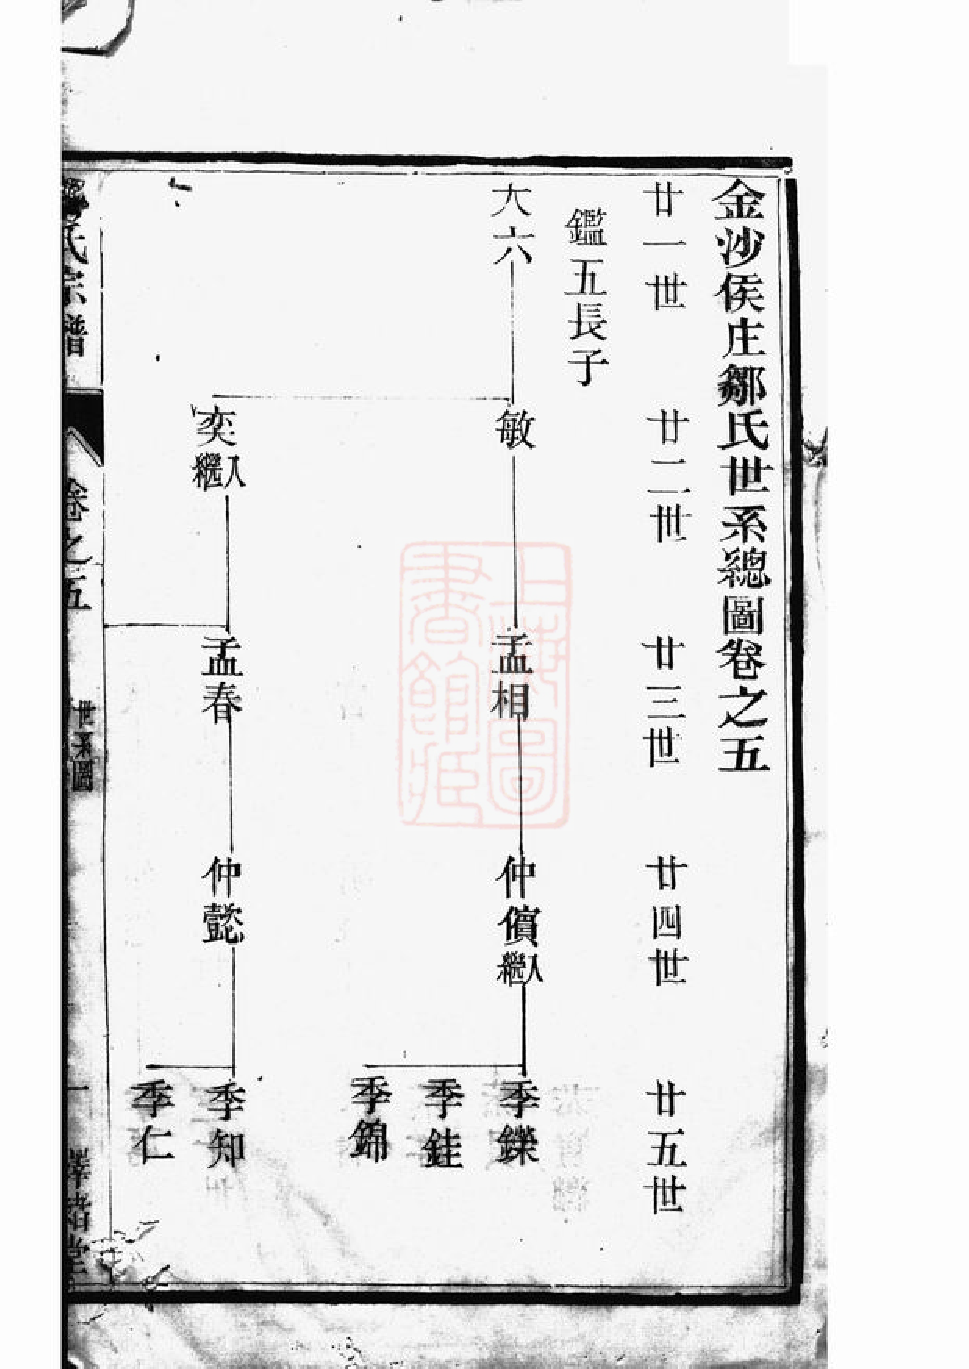 金沙侯庄鄒氏世系總圖卷之五
廿一世
廿二世
廿三世
廿四世
廿五世
鑑五長子
大六
敏
孟相
仲儐入繼
季鑠
季銈
季錦
奕入繼
孟春
仲懿
季知
季仁
氏宗譜
卷之五
世系圖
一
緒堂
上海圖書館藏